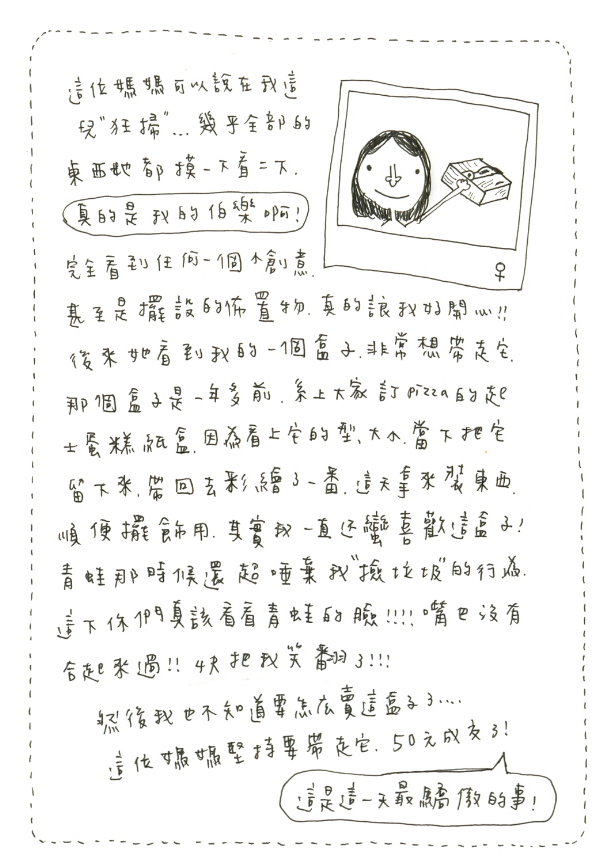 這位媽媽可以說在我這
兒"狂掃"...幾乎全部的
東西她都摸一下看一下.
真的是我的伯樂啊!
完全看到任何一個小創意.
甚至是擺設的佈置物.真的讓我好開心!!
後來她看到我的一個盒子.非常想帶走它.
那個盒子是一年多前.系上大家訂pizza的起
士蛋糕紙盒.因為看上它的型、大小.當下把它
留下來.帶回去彩繪了一番.這天拿來裝東西.
順便擺飾用.其實我一直还蠻喜歡這盒子!
青蛙那時候還超唾棄我"撿垃圾"的行為.
這下你們真該看看青蛙的臉!!!!嘴巴沒有
合起來過!!快把我笑翻了!!!
然後我也不知道要怎広賣這盒子了....
這位媽媽堅持要帶走它.50元成交了!
這是這一天最驕傲的事!